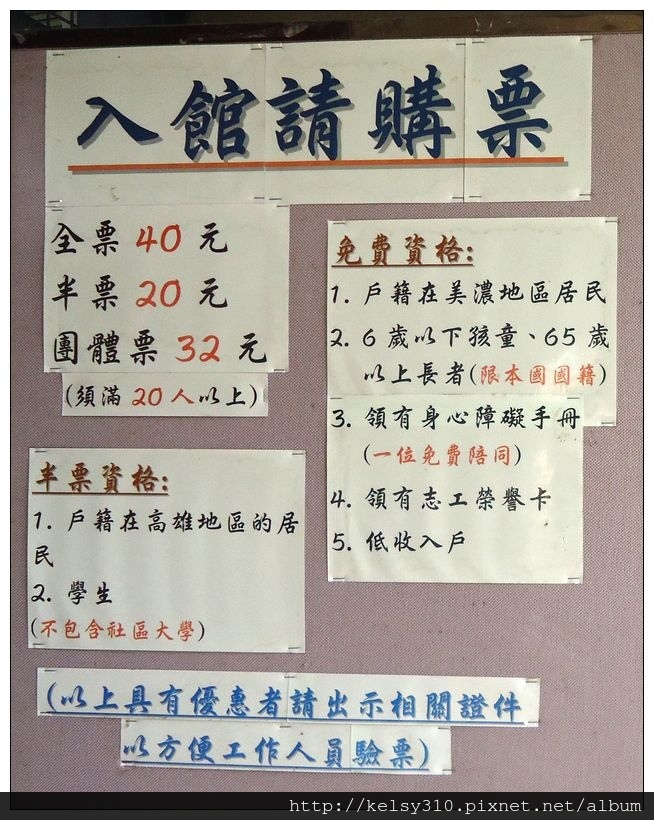 入館請購票
全票 40 元
半票 20 元
團體票 32 元
(須滿 20 人以上)
半票資格:
1. 戶籍在高雄地區的居
民
2. 學生
(不包含社區大學)
免費資格:
1. 戶籍在美濃地區居民
2. 6 歲以下孩童、65 歲
以上長者(限本國國籍)
3. 領有身心障礙手冊
(一位免費陪同)
4. 領有志工榮譽卡
5. 低收入戶
(以上具有優惠者請出示相關證件
以方便工作人員驗票)
http://kelsy310.pixnet.net/album